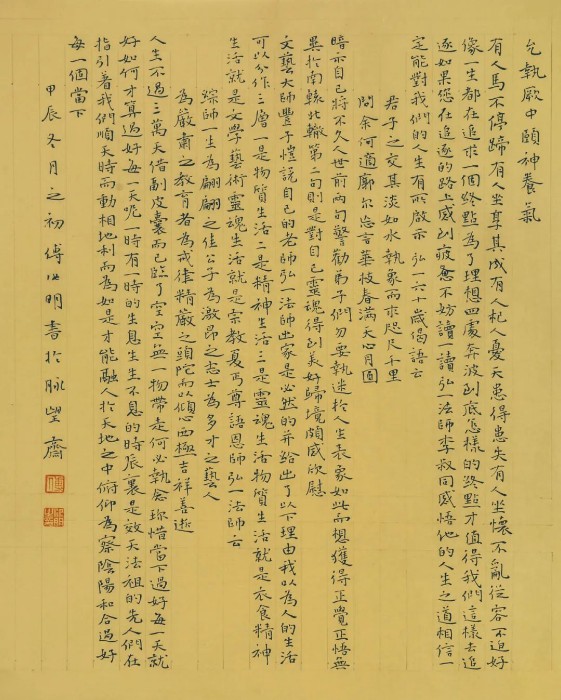 允執厥中頤神養氣
有人馬不停蹄有人坐享其成有人杞人憂天患得患失有人坐懷不亂從容不迫好
像一生都在追求一個終點為了理想四處奔波到底怎樣的終點才值得我們這樣去追
逐如果您在追逐的路上感到疲憊不妨讀一讀弘一法師李叔同感悟他的人生之道相信一
定能對我們的人生有所啟示弘一六十歲偈語云
君子之交其淡如水執象而求咫尺千里
問余何適廓爾忘言華枝春滿天心月圓
暗示自己將不久人世前兩句警勸弟子們勿要執迷於人生表象如此而想獲得正覺正悟無
異於南轅北轍第二句則是對自己靈魂得到美好歸境頗感欣慰
文藝大師豐子愷說自己的老師弘一法師出家是必然的并給出了以下理由我以為人的生活
可以分作三層一是物質生活二是精神生活三是靈魂生活物質生活就是衣食精神
生活就是文學藝術靈魂生活就是宗教夏丏尊語恩師弘一法師云
綜師一生為翩翩之佳公子為激昂之志士為多才之藝人
為嚴肅之教育者為戒律精嚴之頭陀而以傾心西極吉祥善逝
人生不過三萬天借副皮囊而已臨了空空無一物帶是何必執念珍惜當下過好每一天就
好如何才算過好每一天呢一時有一時的生息生生不息的時辰裏是效天法祖的先人們在
指引着我們順天時而動相地利而為如是才能融人於天地之中俯仰為察陰陽和合過好
每一個當下
甲辰冬月之初傅汝明書於脉望齋